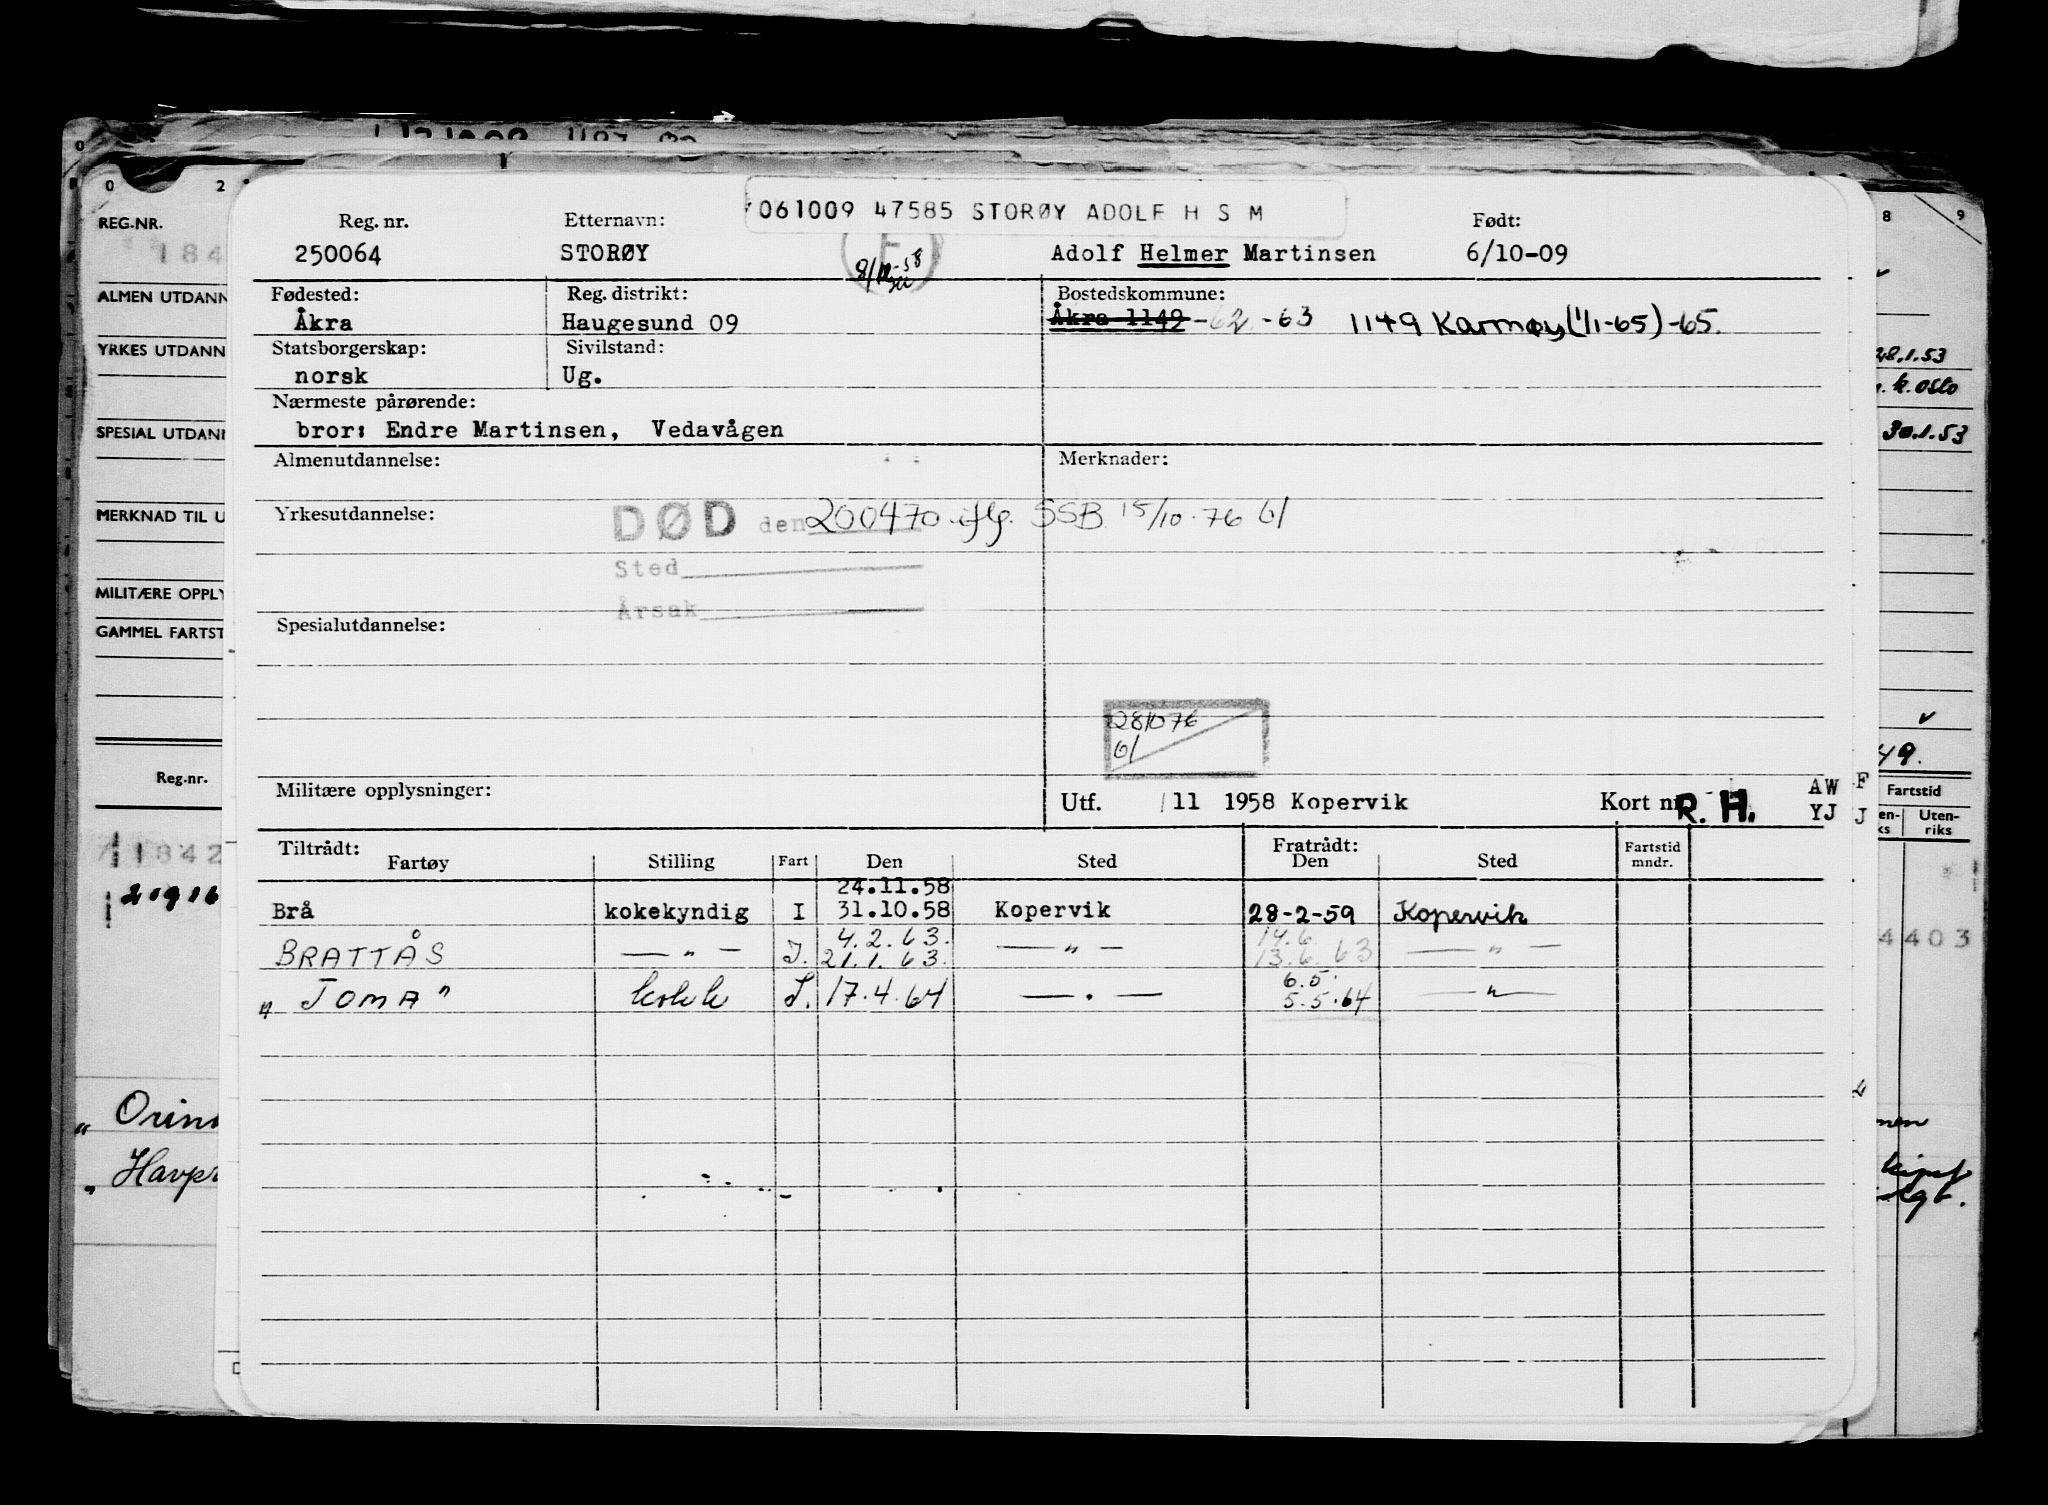 061009 47585 STORØY ADOLF H S M
Reg. nr. Etternavn: Født:
250064 STORØY Adolf Helmer Martinsen 6/10-09
F
Fødested: Reg. distrikt: Bostedskommune:
Åkra Haugesund 09 Åkra 1149 -62 -63 1149 Karmøy (1/1-65) -65.
Statsborgerskap: Sivilstand:
norsk Ug.
Nærmeste pårørende:
bror: Endre Martinsen, Vedavågen
Almenutdannelse: Merknader:
Yrkesutdannelse: DØD den 200470 iflg. SSB 15/10-76
Sted
Årsak
Spesialutdannelse:
281076
Militære opplysninger: Utf. /11 1958 Kopervik Kort nr R. H. AW F
YJ J
Tiltrådt: Fratrådt:
Fartøy Stilling Fart Den Sted Den Sted Fartstid mndr.
24.11.58
Brå kokekyndig I 31.10.58 Kopervik 28-2-59 Kopervik
4.2.63. 14.6
BRATTÅS — " — I. 21.1.63. — " — 13.6.63 — " —
6.5.
" JOMA " kokk I. 17.4.64 — " — 5.5.64 — " —
REG.NR.
184
ALMEN UTDANN
YRKES UTDANN
SPESIAL UTDANN
MERKNAD TIL U
MILITÆRE OPPLY
GAMMEL FARTST
Reg.nr.
1842
21916
" Orin
" Havpr
0 2
8 9
28.1.53
k. Oslo
30.1.53
49.
Fartstid
Uten-
riks
4403